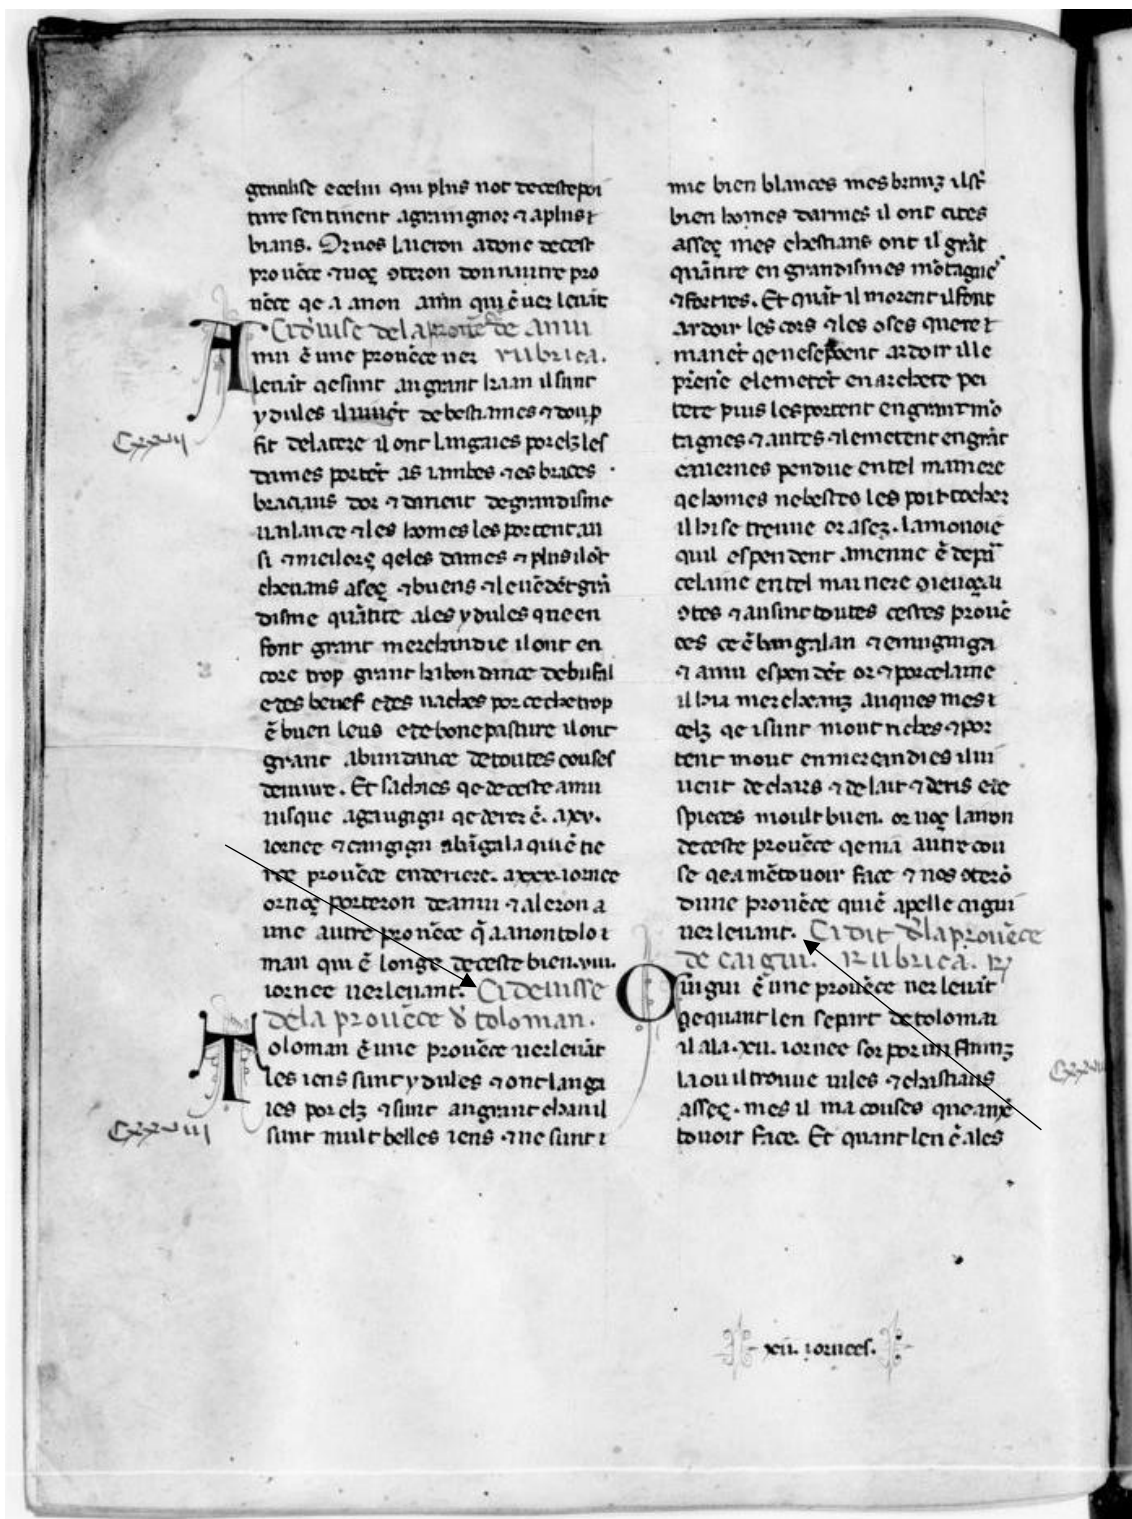 gennlise e celui qui plus not de ceste poi
ture sen tinent a grain gnor ⁊ a plus i
biaus. Or uos laieron adonc de cest
prouẽce ⁊ uoꝫ oteron don nautre pro
uẽce qe a anon amu qui ẽ uer leuãt
Ci deuise de la prouẽce de amu
Amu ẽ une prouẽce uer rubrica.
leuãt qe sunt au grant kaan il sunt
ydules il uiuẽt de bestiames ⁊ dou ꝓ
fit de la tere il ont langaies por elz les
dames portẽt as iambes ⁊ es braces
braciaus dor ⁊ darient de grandisme
uailance ⁊ les homes les portent au
si ⁊ meilorꝫ qe les dames ⁊ plus il õt
cheuaus aseꝫ ⁊ buens ⁊ le uẽdẽt grã
disme quãtite a les ydules que en
font grant merchandie il ont en
core trop grant habondance de bufal
e des buef e des uaches por ce che trop
ẽ buen leus e de bone pasture il ont
grant abundance de toutes couses
de uiure. Et sachies qe de ceste amu
iusque a gaugigu qe derer ẽ. a xv.
iornee ⁊ cangigu a bãgala qui ẽ tie
rce prouẽce enderiere. a xxx. iornee
or noꝫ porteron de amu ⁊ aleron a
une autre prouẽce q̃ a anon tolo i
man qui ẽ longe de ceste bien. viii.
iornee uer leuant. Ci deuisse
de la prouẽce ð toloman.
Toloman ẽ une prouẽce uer leuãt
les iens sunt ydules ⁊ ont langa
ies por elz ⁊ sunt au grant chan il
sunt mult belles iens ⁊ ne sunt i
Cxxvii
Cxxviii
mie bien blances mes brunz il sũt
bien homes darmes il ont cites
asseꝫ mes chestiaus ont il grãt
quãtite en grandismes mõtagnes
⁊ fortres. Et quãt il morent il font
ardoir les cors ⁊ les oses que re i
manẽt qe ne se poent ardoir il le
prẽnẽ e le metẽt en archete pei
tete puis les portent en grant mõ
tagnes ⁊ autes ⁊ le metent en grãt
cauernes pendue en tel mainere
qe homes ne bestes les poit tocher
il hi se treuue or asez. la monoie
quil espendent amenue ẽ de pur
celaine en tel mainere
⁊ ausint toutes cestes prouẽ
ces ce ẽ bangalan ⁊ cauginga
⁊ amu espendẽt or ⁊ porcelaine
il hi a mercheanz auques mes i
celz qe i sunt mout riches ⁊ por
tent mout en mercandies il ui
uent de chars ⁊ de lait ⁊ de ris e de
spieces moult buen. or uoꝫ lairon
de ceste prouẽce qe ni a autre cou
se qe a mẽtouoir face ⁊ nos oterõ
dune prouẽce qui ẽ apelle cuigui
uer leuant. Ci dit ð la prouẽce
de caigui. Rubrica.
Cuigui ẽ une prouẽce uer leuãt
qe quant len se part de toloman
il ala. xii. iornee sor por un flunz
la ou il trouue uiles ⁊ chastiaus
asseꝫ. mes il ni a couses que a mẽ
touoir face. Et quant len ẽ ales
xii. iornees.